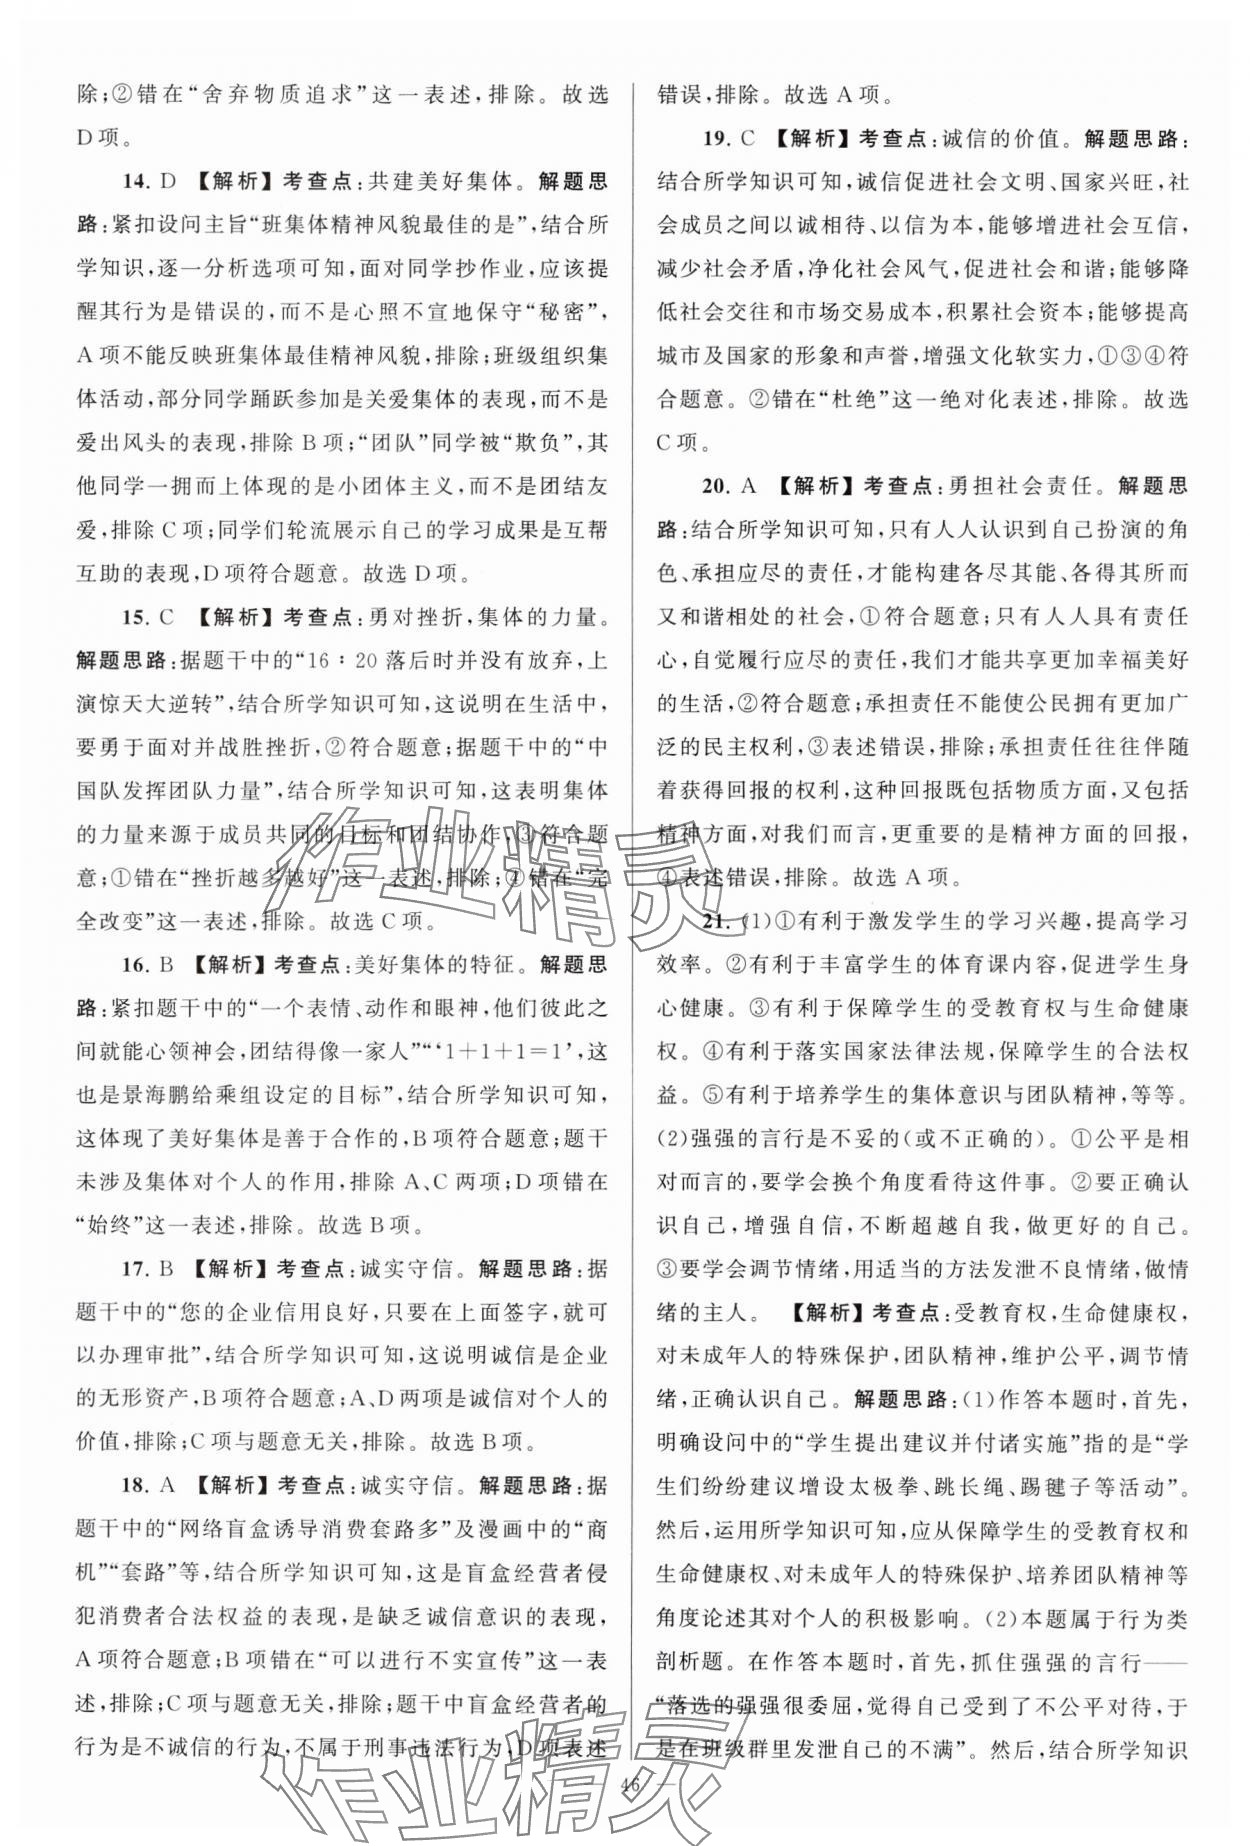 除;②错在“舍弃物质追求”这一表述,排除。故选
D项。
14. D 【解析】考查点:共建美好集体。解题思
路:紧扣设问主旨“班集体精神风貌最佳的是”,结合所
学知识,逐一分析选项可知,面对同学抄作业,应该提
醒其行为是错误的,而不是心照不宣地保守“秘密”,
A项不能反映班集体最佳精神风貌,排除;班级组织集
体活动,部分同学踊跃参加是关爱集体的表现,而不是
爱出风头的表现,排除B项;“团队”同学被“欺负”,其
他同学一拥而上体现的是小团体主义,而不是团结友
爱,排除C项;同学们轮流展示自己的学习成果是互帮
互助的表现,D项符合题意。故选D项。
15. C 【解析】考查点:勇对挫折,集体的力量。
解题思路:据题干中的“16∶20落后时并没有放弃,上
演惊天大逆转”,结合所学知识可知,这说明在生活中,
要勇于面对并战胜挫折,②符合题意;据题干中的“中
国队发挥团队力量”,结合所学知识可知,这表明集体
的力量来源于成员共同的目标和团结协作,③符合题
意;①错在“挫折越多越好”这一表述,排除;④错在“完
全改变”这一表述,排除。故选C项。
16. B 【解析】考查点:美好集体的特征。解题思
路:紧扣题干中的“一个表情、动作和眼神,他们彼此之
间就能心领神会,团结得像一家人”“‘1+1+1=1’,这
也是景海鹏给乘组设定的目标”,结合所学知识可知,
这体现了美好集体是善于合作的,B项符合题意;题干
未涉及集体对个人的作用,排除A、C两项;D项错在
“始终”这一表述,排除。故选B项。
17. B 【解析】考查点:诚实守信。解题思路:据
题干中的“您的企业信用良好,只要在上面签字,就可
以办理审批”,结合所学知识可知,这说明诚信是企业
的无形资产,B项符合题意;A、D两项是诚信对个人的
价值,排除;C项与题意无关,排除。故选B项。
18. A 【解析】考查点:诚实守信。解题思路:据
题干中的“网络盲盒诱导消费套路多”及漫画中的“商
机”“套路”等,结合所学知识可知,这是盲盒经营者侵
犯消费者合法权益的表现,是缺乏诚信意识的表现,
A项符合题意;B项错在“可以进行不实宣传”这一表
述,排除;C项与题意无关,排除;题干中盲盒经营者的
行为是不诚信的行为,不属于刑事违法行为,D项表述
错误,排除。故选A项。
19. C 【解析】考查点:诚信的价值。解题思路:
结合所学知识可知,诚信促进社会文明、国家兴旺,社
会成员之间以诚相待、以信为本,能够增进社会互信,
减少社会矛盾,净化社会风气,促进社会和谐;能够降
低社会交往和市场交易成本,积累社会资本;能够提高
城市及国家的形象和声誉,增强文化软实力,①③④符
合题意。②错在“杜绝”这一绝对化表述,排除。故选
C项。
20. A 【解析】考查点:勇担社会责任。解题思
路:结合所学知识可知,只有人人认识到自己扮演的角
色、承担应尽的责任,才能构建各尽其能、各得其所而
又和谐相处的社会,①符合题意;只有人人具有责任
心,自觉履行应尽的责任,我们才能共享更加幸福美好
的生活,②符合题意;承担责任不能使公民拥有更加广
泛的民主权利,③表述错误,排除;承担责任往往伴随
着获得回报的权利,这种回报既包括物质方面,又包括
精神方面,对我们而言,更重要的是精神方面的回报,
④表述错误,排除。故选A项。
21. (1)①有利于激发学生的学习兴趣,提高学习
效率。②有利于丰富学生的体育课内容,促进学生身
心健康。③有利于保障学生的受教育权与生命健康
权。④有利于落实国家法律法规,保障学生的合法权
益。⑤有利于培养学生的集体意识与团队精神,等等。
(2)强强的言行是不妥的(或不正确的)。①公平是相
对而言的,要学会换个角度看待这件事。②要正确认
识自己,增强自信,不断超越自我,做更好的自己。
③要学会调节情绪,用适当的方法发泄不良情绪,做情
绪的主人。 【解析】考查点:受教育权,生命健康权,
对未成年人的特殊保护,团队精神,维护公平,调节情
绪,正确认识自己。解题思路:(1)作答本题时,首先,
明确设问中的“学生提出建议并付诸实施”指的是“学
生们纷纷建议增设太极拳、跳长绳、踢毽子等活动”。
然后,运用所学知识可知,应从保障学生的受教育权和
生命健康权、对未成年人的特殊保护、培养团队精神等
角度论述其对个人的积极影响。(2)本题属于行为类
剖析题。在作答本题时,首先,抓住强强的言行——
“落选的强强很委屈,觉得自己受到了不公平对待,于
是在班级群里发泄自己的不满”。然后,结合所学知识
— 46 —
作业精灵
作业精灵